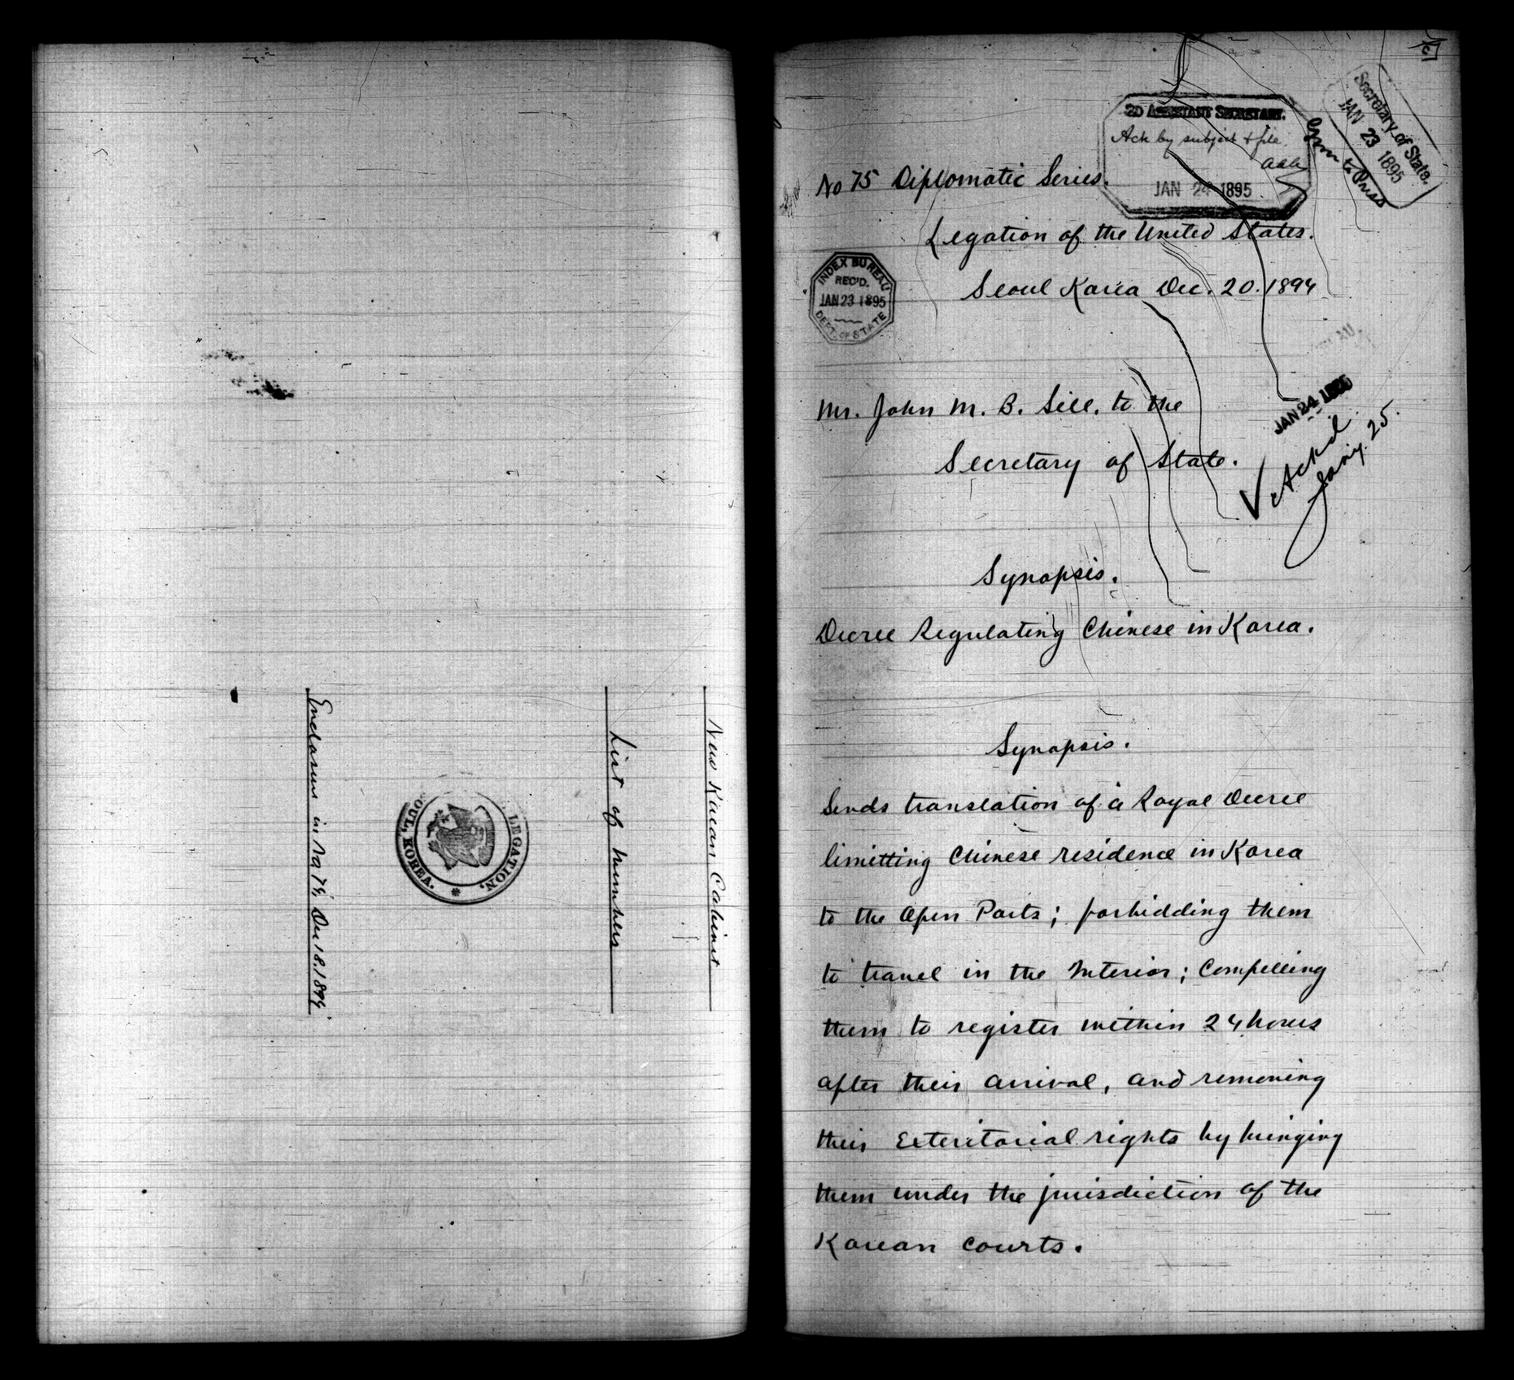 New Korean Cabinet
List of members
LEGATION.
SEOUL, KOREA.
Enclosure in No 74, Dec 18. 1894.
2D ASSISTANT SECRETARY.
Ack by subject & file
aaa
JAN 24 1895
Secretary of State.
JAN 23 1895
No 75 Diplomatic Series.
Legation of the United States.
Seoul Korea Dec. 20. 1894
INDEX BUREAU
REC'D.
JAN 23 1895
DEPT. OF STATE
Mr. John M. B. Sill. to the
Secretary of State.
JAN 24 1895
Ack'd
Jany. 25.
Synopsis.
Decree Regulating Chinese in Korea.
Synopsis.
Sends translation of a Royal Decree
limitting Chinese residence in Korea
to the Open Ports; forbidding them
to travel in the Interior; Compelling
them to register within 24 hours
after their arrival, and removing
their Exteritorial rights by bringing
them under the jurisdiction of the
Korean Courts.